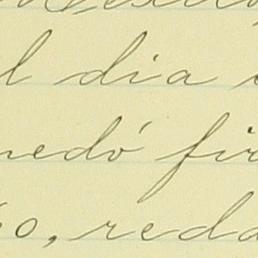 l dia
nedó fir
o, reda